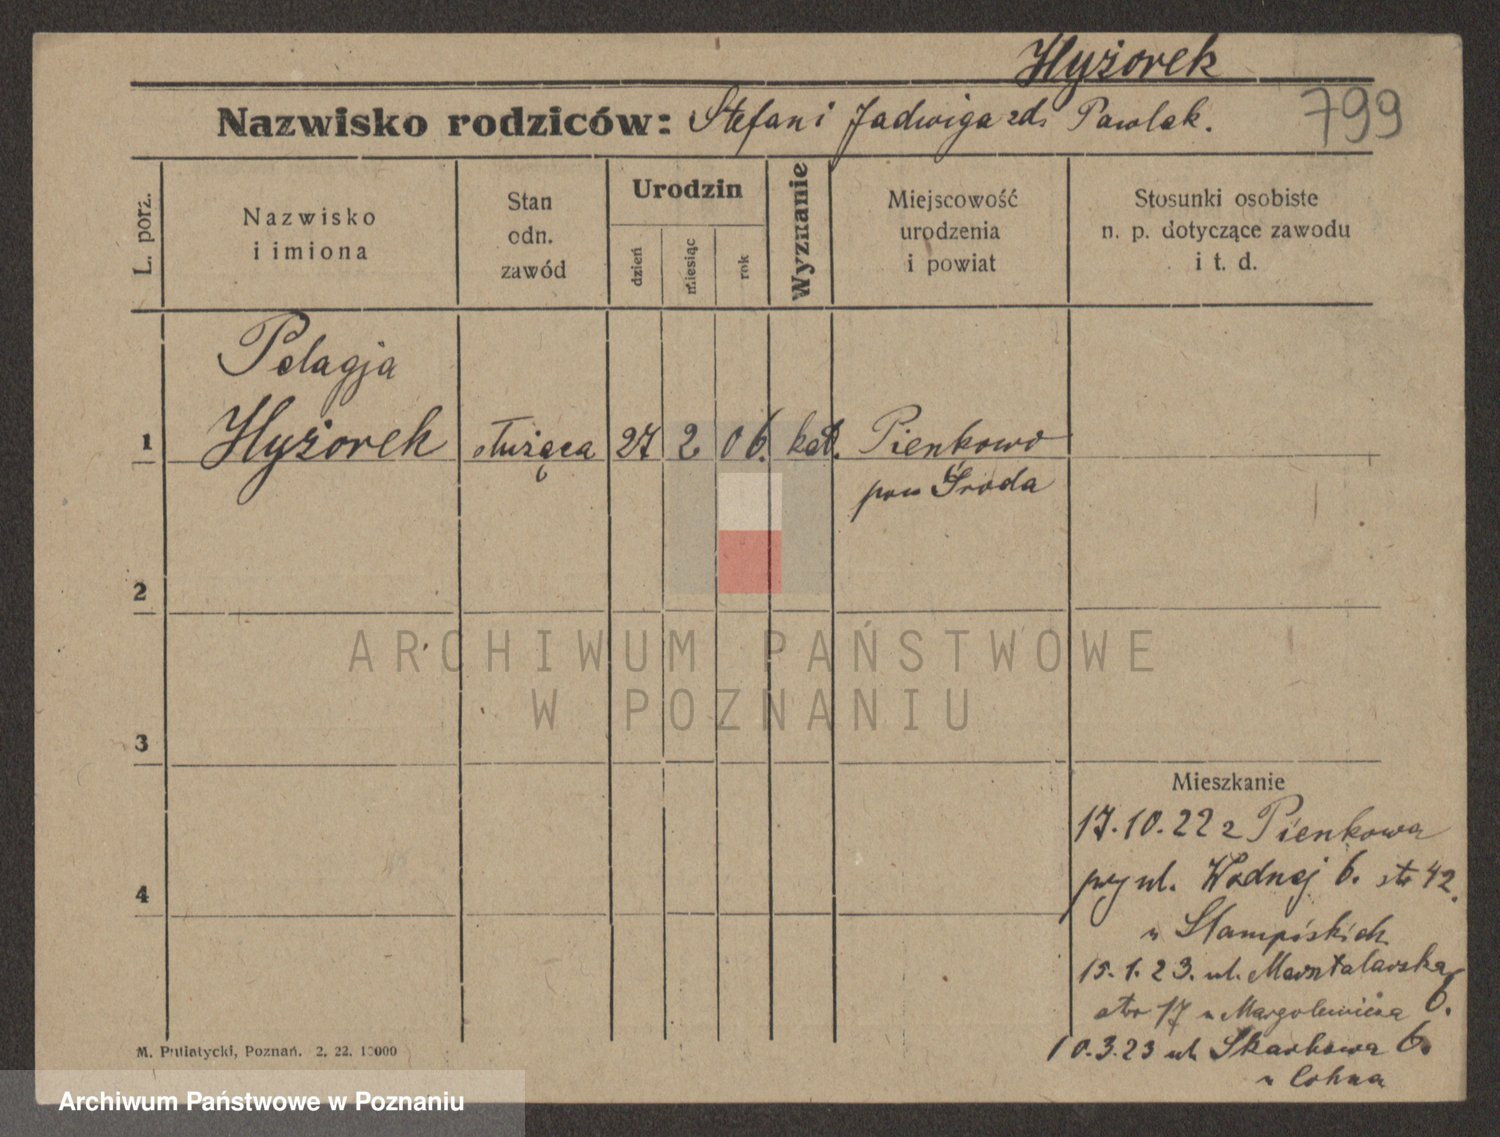 Hyżorek
Nazwisko rodziców: Stefan i Jadwiga zd. Pawlak.
799
L. porz.
Nazwisko
i imiona
Stan
odn.
zawód
Urodzin
dzień
miesiąc
rok
Wyznanie
Miejscowość
urodzenia
i powiat
Stosunki osobiste
n. p. dotyczące zawodu
i t. d.
Pelagja
1 Hyżorek służąca 27 2 06. kat. Pienkowo
pow Środa
2
ARCHIWUM PAŃSTWOWE
W POZNANIU
3
Mieszkanie
17.10.22 z Pienkowa
4
przy ul. Wodnej 6. str 42.
u
15.1.23. ul. Masztalarska 6.
str 17 u Margolewicza
10.3.23 ul. Skarbowa 6.
u Cohna
M. Putiatycki, Poznań. 2, 22. 10000
Archiwum Państwowe w Poznaniu